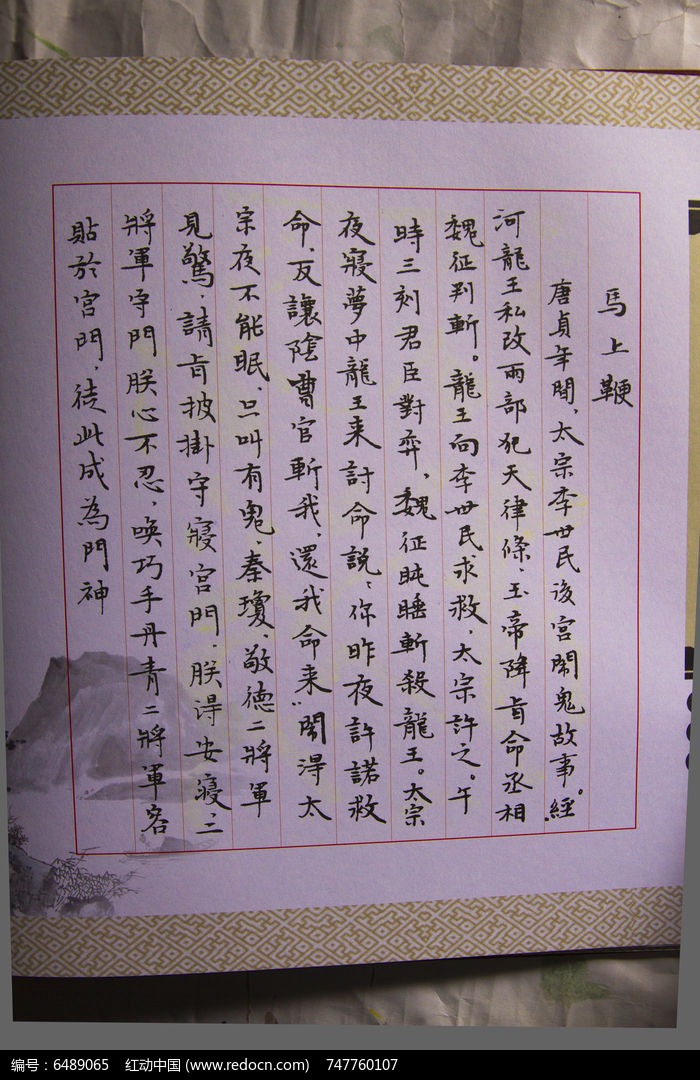 馬上鞭
唐貞年間，太宗李世民後宮鬧鬼故事。經
河龍王私改雨部犯天律條、玉帝降旨命丞相
魏征判斬。龍王向李世民求救，太宗許之。午
時三刻君臣對弈，魏征盹睡斬殺龍王。太宗
夜寢夢中龍王来討命説、你昨夜許諾救
命，反讓陰曹官斬我，還我命来"鬧得太
宗夜不能眠、只叫有鬼，秦瓊、敬德二將軍
見驚，請旨披掛守寢宮門，朕得安寢，二
將軍守門朕心不忍，喚巧手丹青二將軍容
貼於宮門，徒此成為門神
编号：6489065 红动中国 (www.redocn.com) 747760107